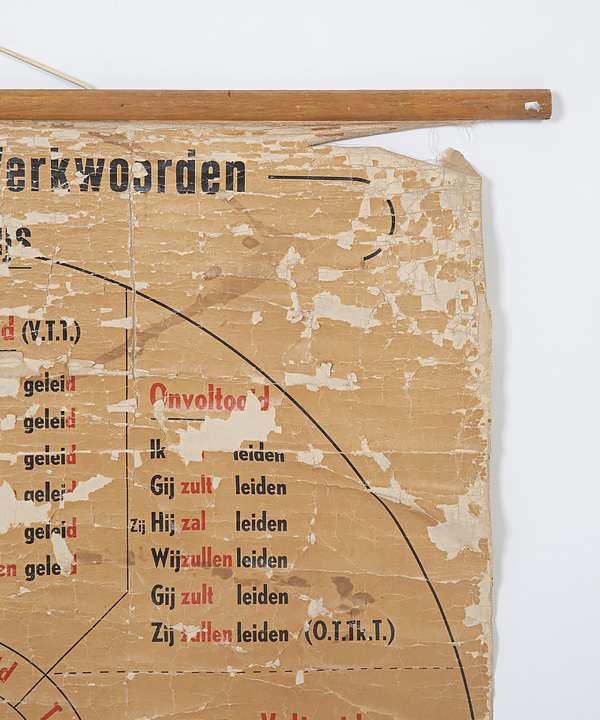 Werkwoorden
(V.T.T.)
geleid
geleid
geleid
geleid
geleid
geleid
Onvoltooid
Ik leiden
Gij zult leiden
Zij Hij zal leiden
Wij zullen leiden
Gij zult leiden
Zij zullen leiden (O.T.Tk.T.)